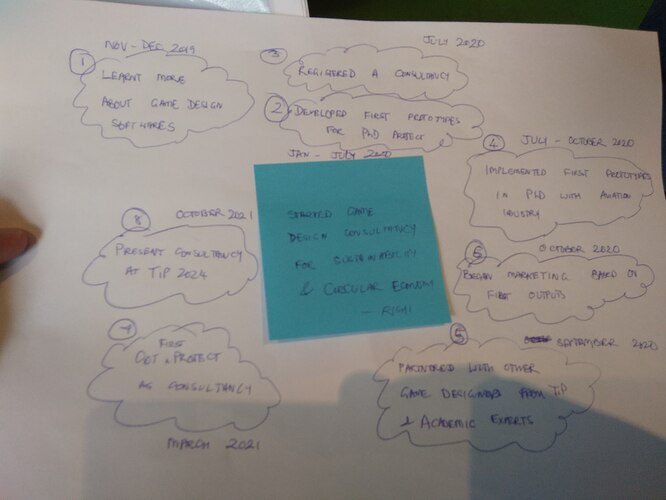 NOV - DEC 2019
1
LEARNT MORE
ABOUT GAME DESIGN
SOFTWARES
JULY 2020
3
REGISTERED A CONSULTANCY
2
DEVELOPED FIRST PROTOTYPES
FOR PhD PROJECT
JAN - JULY 2020
4
JULY - OCTOBER 2020
IMPLEMENTED FIRST PROTOTYPES
IN PhD WITH AVIATION
INDUSTRY
8
OCTOBER 2021
PRESENT CONSULTANCY
AT TiP 2024
STARTED GAME
DESIGN CONSULTANCY
FOR SUSTAINABILITY
& CIRCULAR ECONOMY
- RISHI
OCTOBER 2020
BEGAN MARKETING BASED ON
FIRST OUTPUTS
7
FIRST
GOT A PROJECT
AS CONSULTANCY
MARCH 2021
SEPTEMBER 2020
PARTNERED WITH OTHER
GAME DESIGNERS FROM TiP
& ACADEMIC EXPERTS